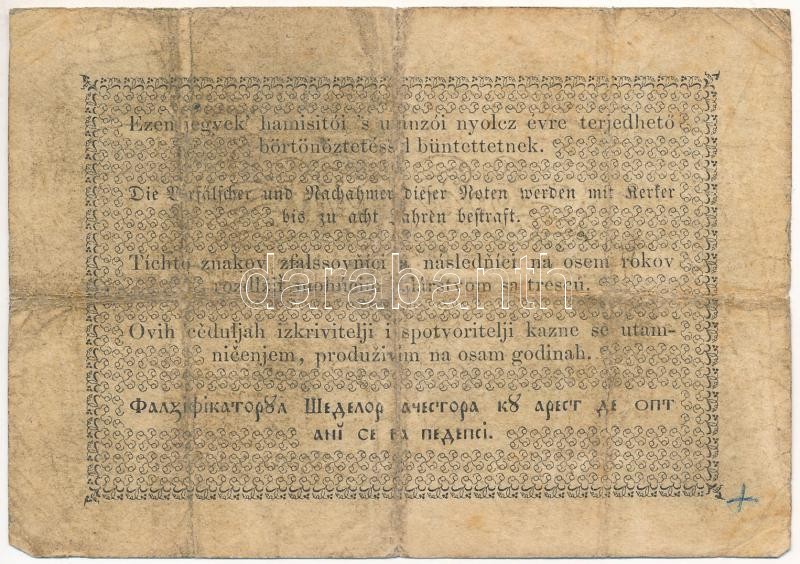 Ezen jegyek' hamisitói 's utánzói nyolcz évre terjedhető
börtönöztetéssel büntettetnek.
Die Verfälscher und Nachahmer dieser Noten werden mit Kerker
bis zu acht Jahren bestraft.
Tíchto znakov zfalssovňíci a následňíci na osem rokov
sa trescú.
Ovih cèduljah izkrivitelji i spotvoritelji kazne se utam-
ničenjem, produživim na osam godinah.
Фалꙋіфікаторꙋл Шеделор ачестора кꙋ арест де опт
анĭ се ва педепсі.
darabanth